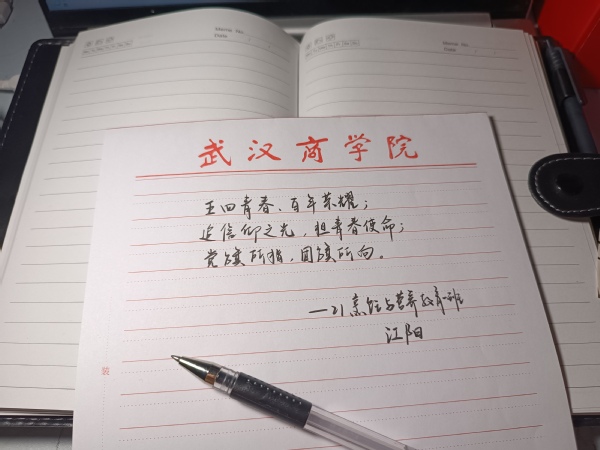 Memo No.
Date
Memo No.
Date
武汉商学院
五四青春、百年荣耀;
追信仰之光,担青春使命;
党旗所指,团旗所向。
—21烹饪与营养教育一班
江阳
装